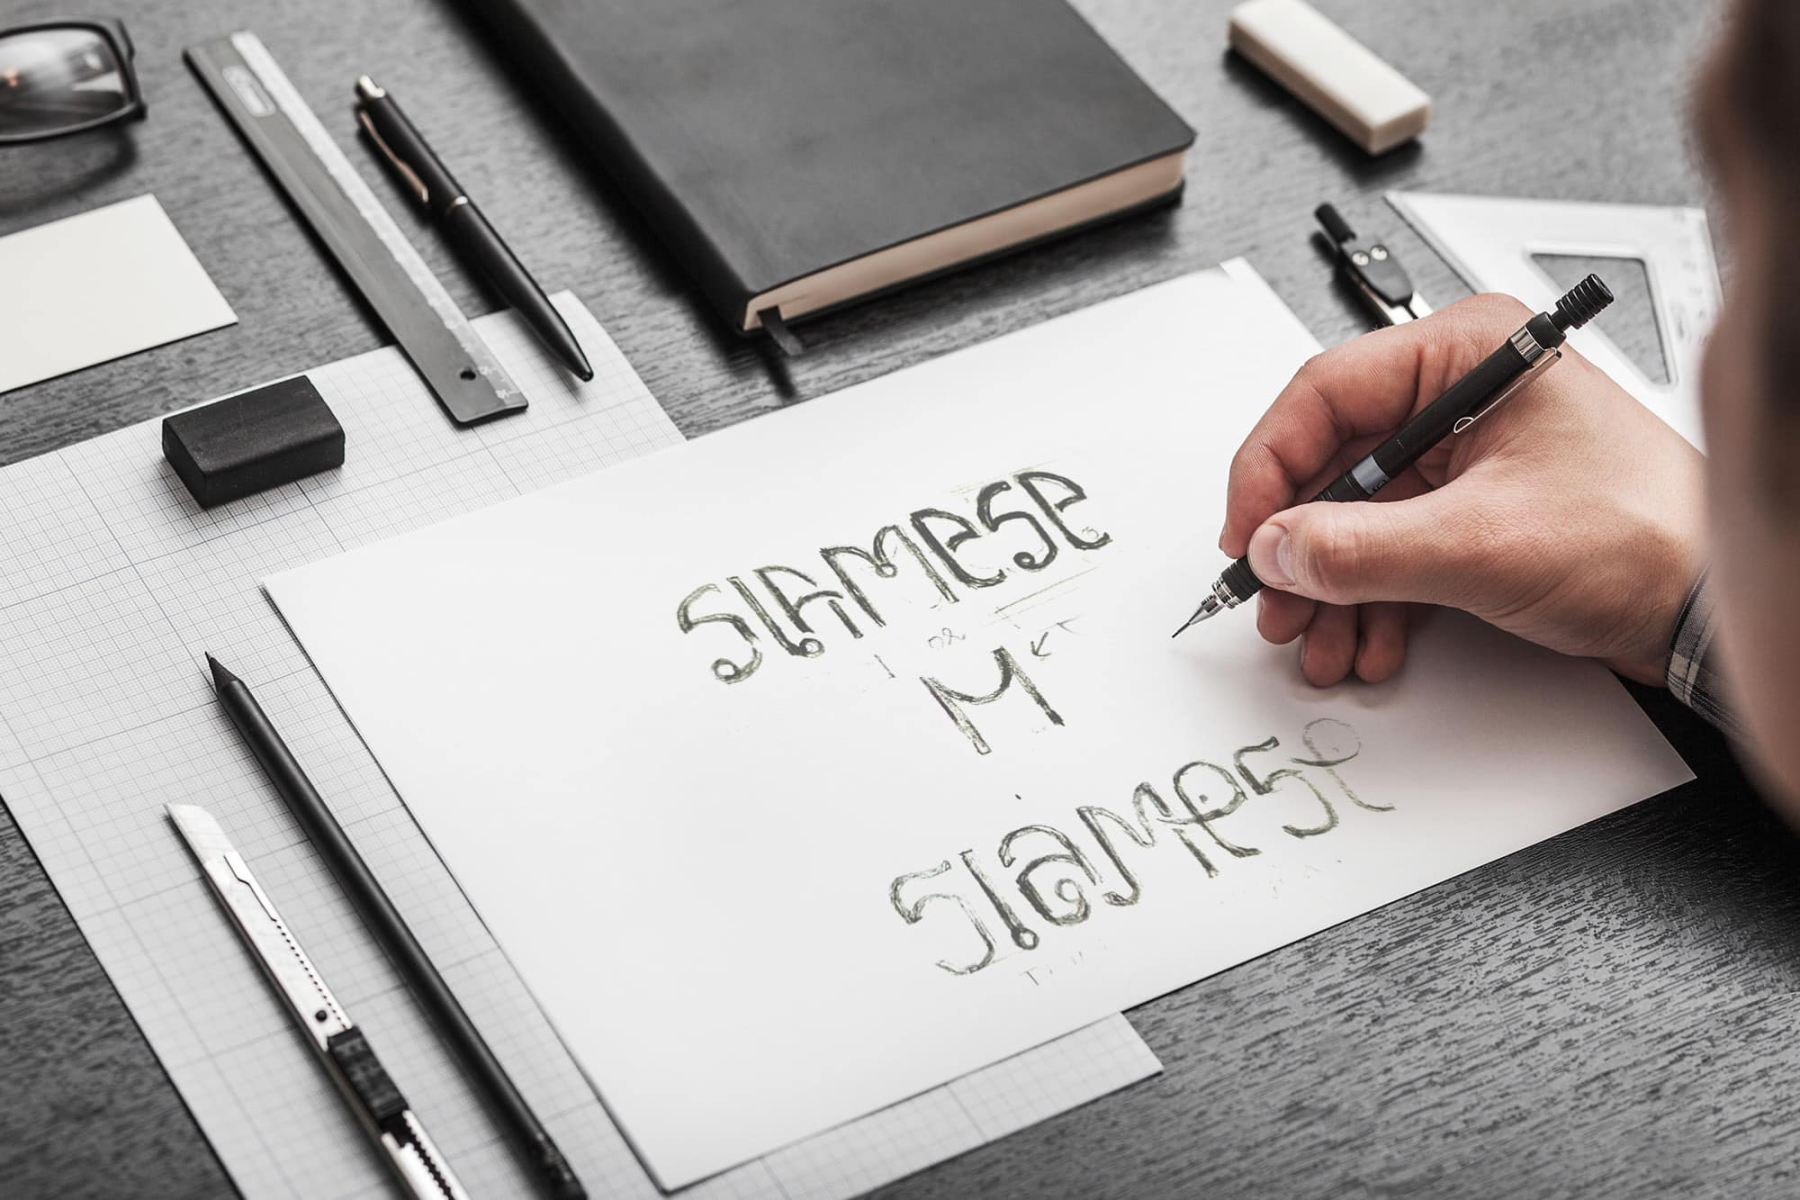 SIAMESE
or
M
SIAMESE